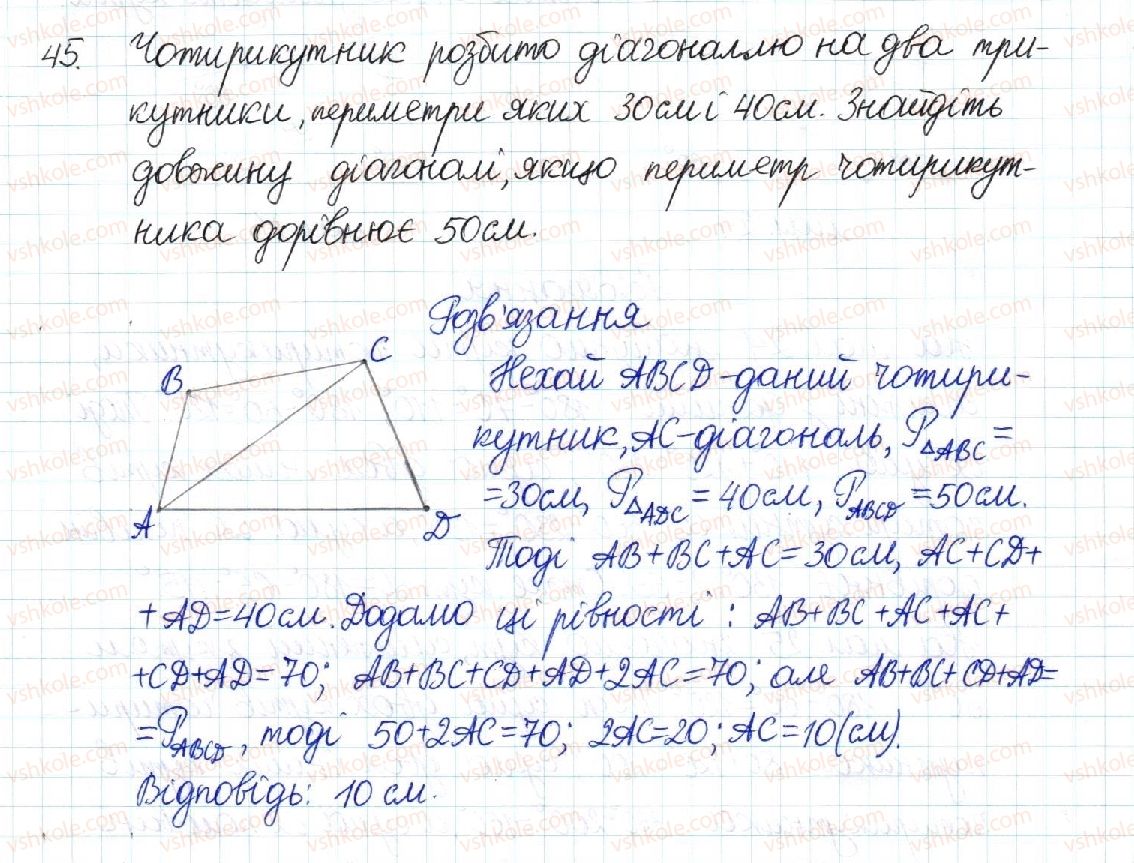 45. Чотирикутник розбито діагоналлю на два три-
кутники, периметри яких 30см і 40см. Знайдіть
довжину діагоналі, якщо периметр чотирикут-
ника дорівнює 50см.
Розв'язання
C
B
A
D
Нехай ABCD-даний чотири-
кутник, AC-діагональ, P△ABC =
=30см, P△ADC = 40см, PABCD =50см.
Тоді AB+BC+AC=30см, AC+CD+
+AD=40см. Додамо ці рівності: AB+BC+AC+AC+
+CD+AD=70; AB+BC+CD+AD+2AC=70; але AB+BC+CD+AD=
=PABCD, тоді 50+2AC=70; 2AC=20; AC=10(см).
Відповідь: 10 см.
vshkole.com